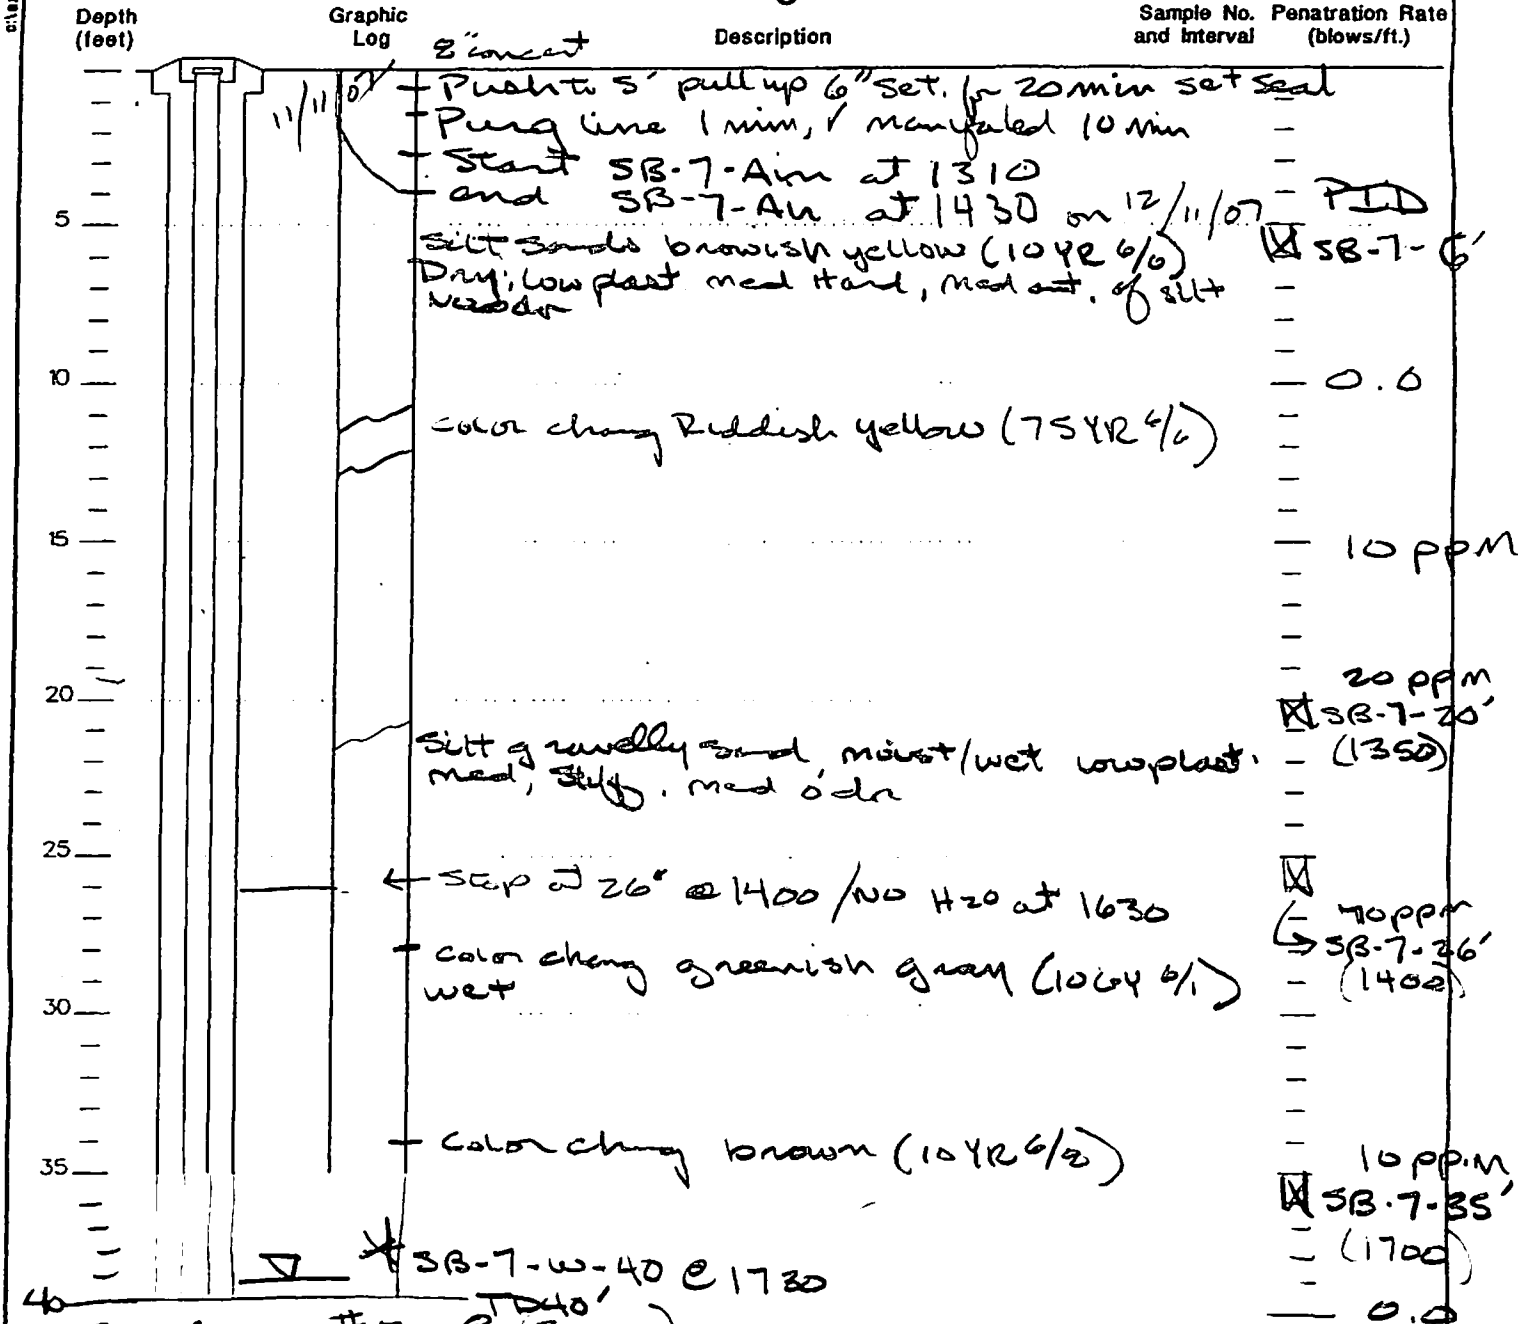 Depth
(feet)
Graphic
Log
Description
Sample No.
and Interval
Penatration Rate
(blows/ft.)
Push to 5' pull up 6" set. for 20 min set seal
Purg line 1 min, ✓ 10 min
Start SB-7-Air at 1310
end SB-7-Air at 1430 on 12/11/07
PID
5
Silt Sands browish yellow (10 YR 6/6)
SB-7-6'
Dry, low plast med Hard, med amt. of silt
No odor
10
0.0
color chang Reddish yellow (75 YR 6/6)
15
10 ppM
20 ppm
20
SB-7-20'
(1350)
Silt gravelly sand, moist/wet low plast.
med, Stiff. med odor
25
← Stop at 26' @ 1400 / NO H20 at 1630
70 ppm
SB-7-26'
(1400)
color chang greenish gray (10GY 6/1)
wet
30
color chang brown (10 YR
35
10 ppM
SB-7-35'
(1700)
SB-7-W-40 @ 1730
40
TD40'
0.0